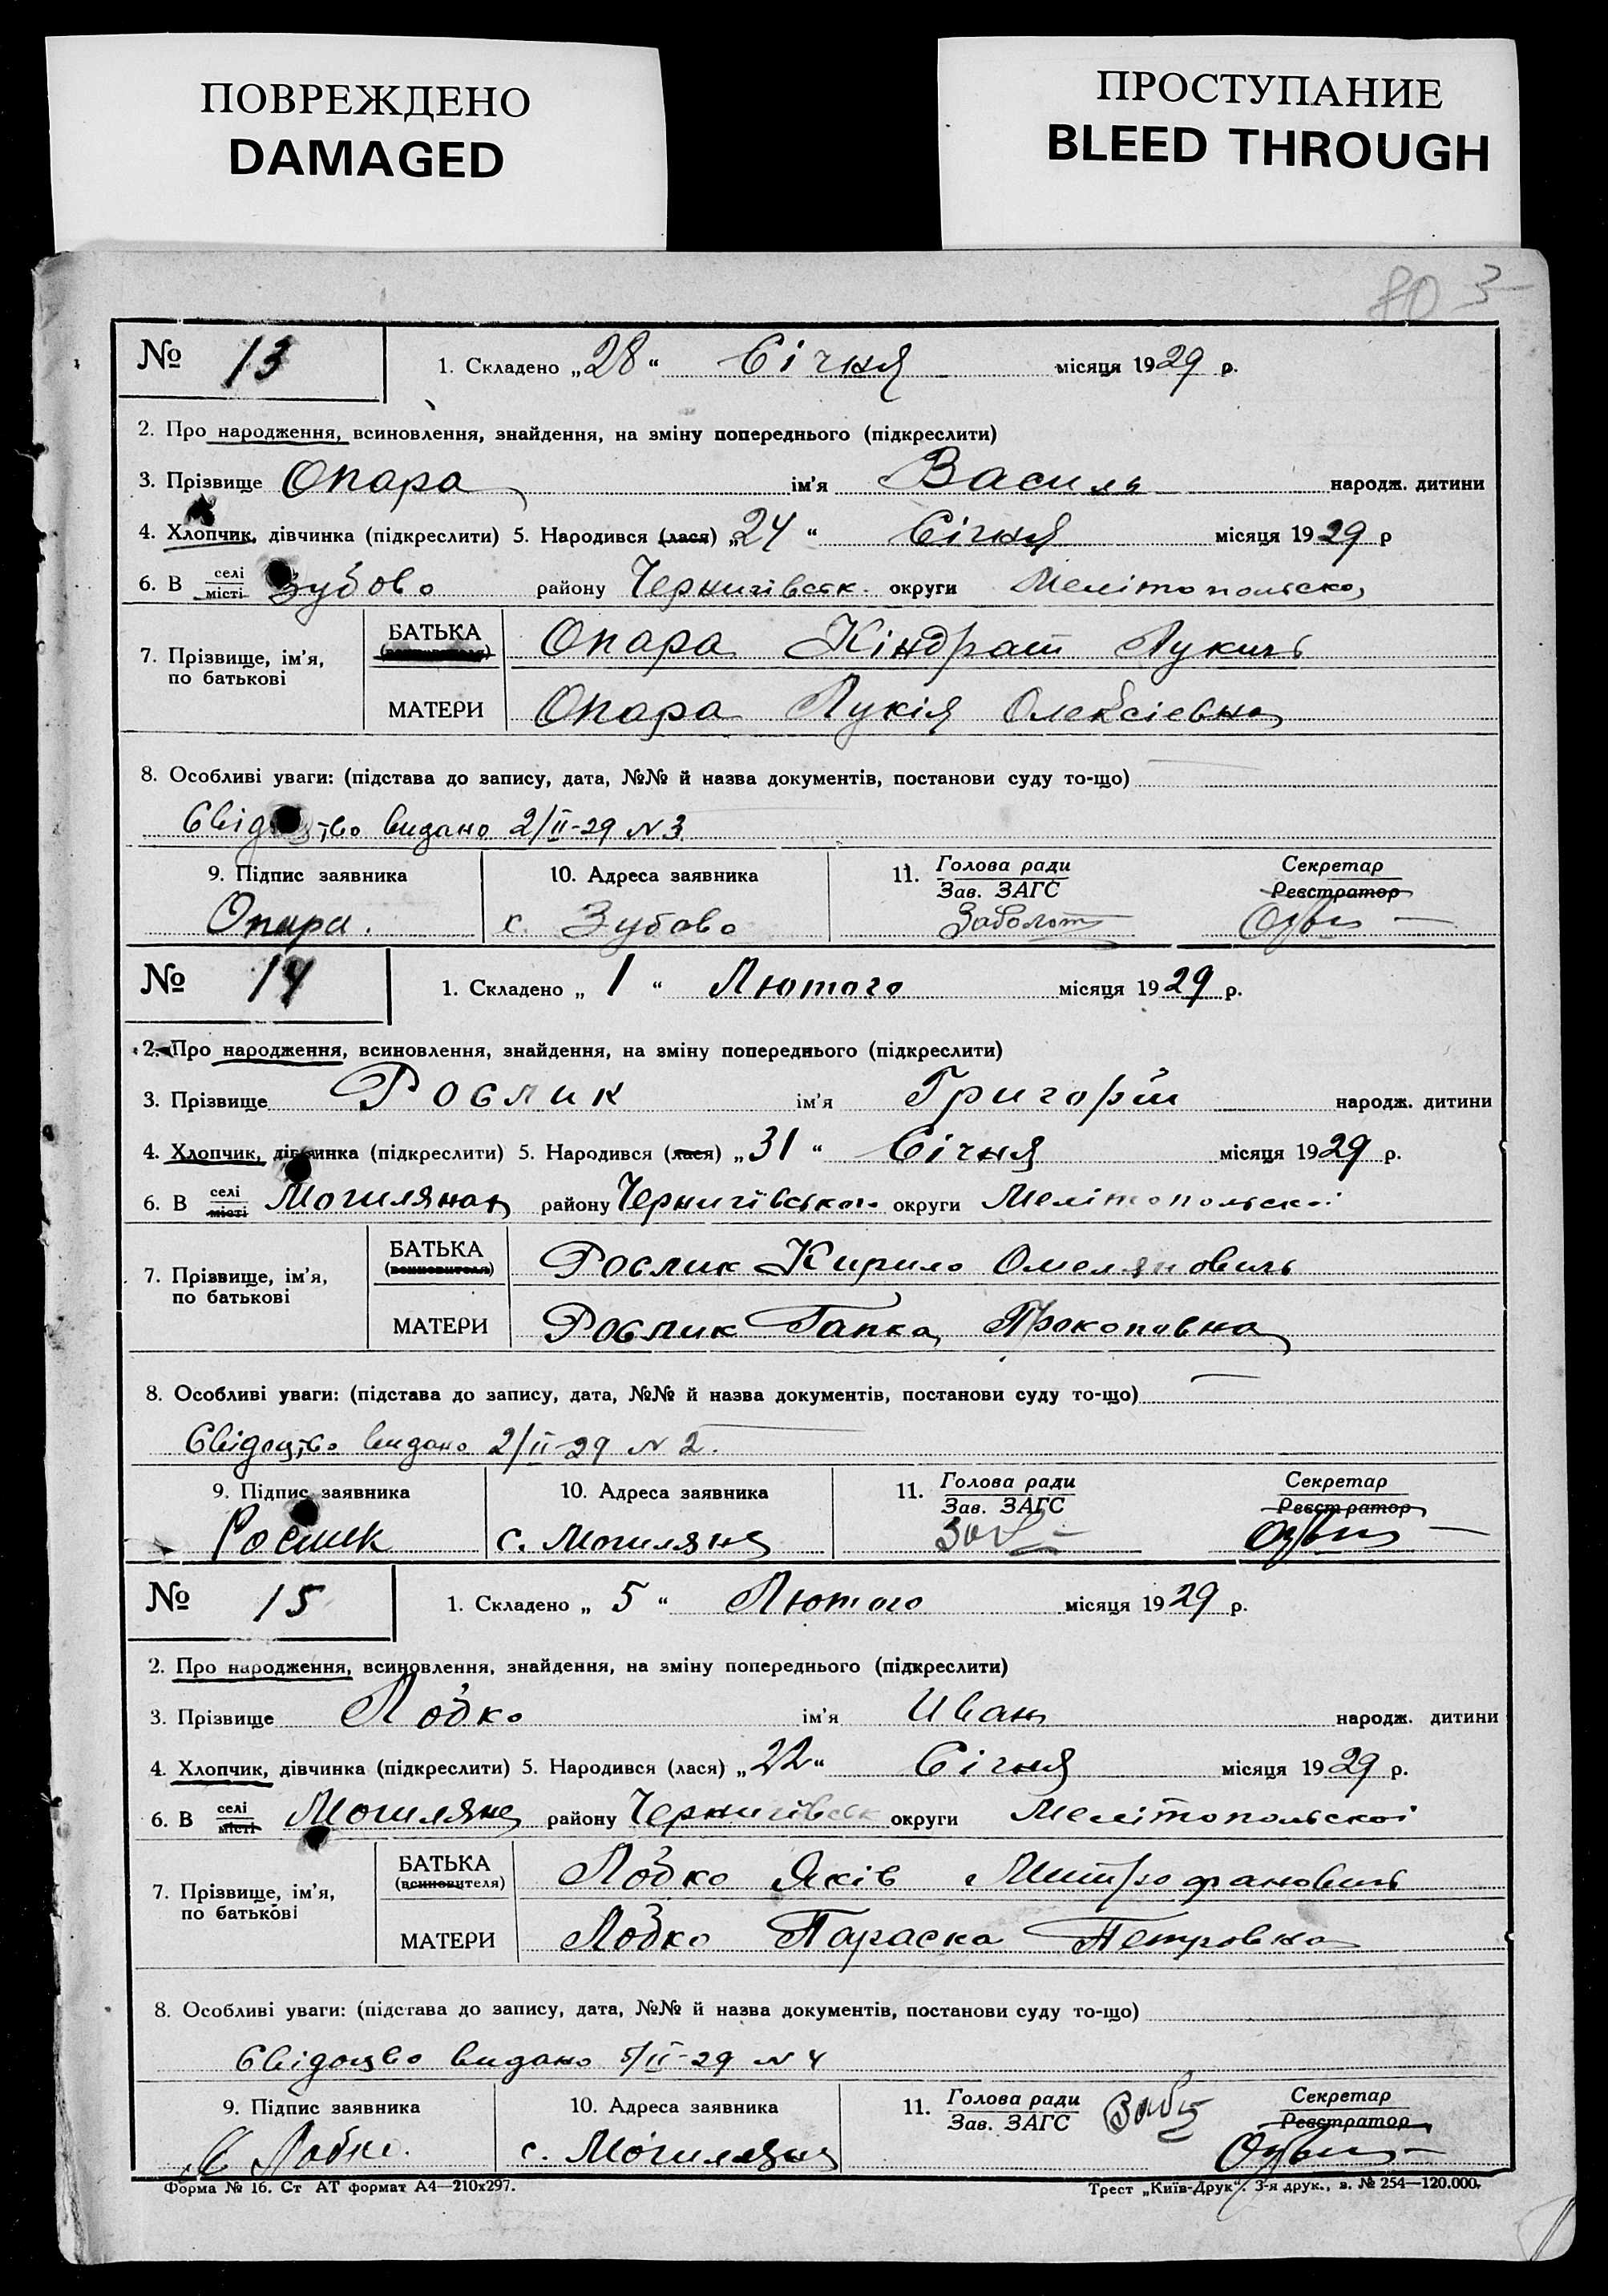 ПОВРЕЖДЕНО
DAMAGED
ПРОСТУПАНИЕ
BLEED THROUGH
80 3
№ 13
1. Складено „28“ Січня місяця 1929 р.
2. Про народження, всиновлення, знайдення, на зміну попереднього (підкреслити)
3. Прізвище Опара ім'я Василь народж. дитини
4. Хлопчик, дівчинка (підкреслити) 5. Народився (лася) „24“ Січня місяця 1929 р
6. В селі місті Зубово району Чернигівськ. округи Мелітопольско
7. Прізвище, ім'я, по батькові
БАТЬКА Опара Кіндрат Лукичь
МАТЕРИ Опара Лукія Олексієвна
8. Особливі уваги: (підстава до запису, дата, №№ й назва документів, постанови суду то-що)
Свідоцтво видано 2/II-29 N 3.
9. Підпис заявника 10. Адреса заявника 11. Голова ради Зав. ЗАГС Секретар Реєстратор
Опара. с. Зубово Заболот
№ 14
1. Складено „1“ Лютого місяця 1929 р.
2. Про народження, всиновлення, знайдення, на зміну попереднього (підкреслити)
3. Прізвище Рослик ім'я Григорій народж. дитини
4. Хлопчик, дівчинка (підкреслити) 5. Народився (лася) „31“ Січня місяця 1929 р.
6. В селі місті Могиляной району Чернигівського округи Мелітопольскоі
7. Прізвище, ім'я, по батькові
БАТЬКА (всиновителя) Рослик Кирило Омеляновичь
МАТЕРИ Рослик Гапка Прокоповна
8. Особливі уваги: (підстава до запису, дата, №№ й назва документів, постанови суду то-що)
Свідоцтво видано 2/II-29 N 2.
9. Підпис заявника 10. Адреса заявника 11. Голова ради Зав. ЗАГС Секретар Реєстратор
Рослик с. Могиляня
№ 15
1. Складено „5“ Лютого місяця 1929 р.
2. Про народження, всиновлення, знайдення, на зміну попереднього (підкреслити)
3. Прізвище Лобко ім'я Иван народж. дитини
4. Хлопчик, дівчинка (підкреслити) 5. Народився (лася) „22“ Січня місяця 1929 р.
6. В селі місті Могиляне району Чернигівськ округи Мелітопольскоі
7. Прізвище, ім'я, по батькові
БАТЬКА (всиновителя) Лобко Яків Митрофановичь
МАТЕРИ Лобко Параска Петровна
8. Особливі уваги: (підстава до запису, дата, №№ й назва документів, постанови суду то-що)
Свідоцво видано 5/II-29 N 4
9. Підпис заявника 10. Адреса заявника 11. Голова ради Зав. ЗАГС Секретар Реєстратор
Лобко. с. Могиляня
Форма № 16. Ст АТ формат А4—210х297.
Трест „Київ-Друк“. 3-я друк., з. № 254—120.000.